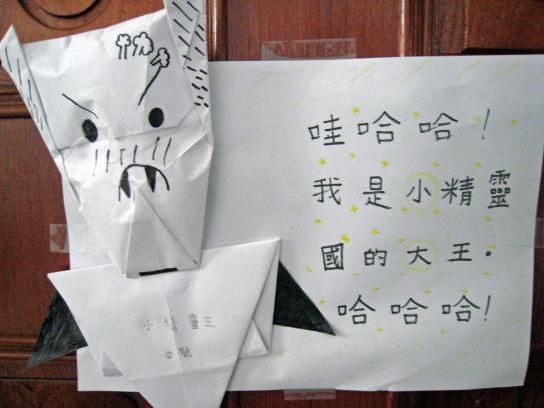 哇哈哈!
我是小精靈
國的大王.
哈哈哈!
小精靈王
①號